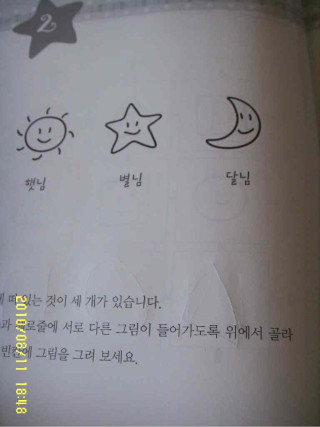 2
햇님 별님 달님
있는 것이 세 개가 있습니다.
과 세로줄에 서로 다른 그림이 들어가도록 위에서 골라
빈칸에 그림을 그려 보세요.
2010/08/11 18:48